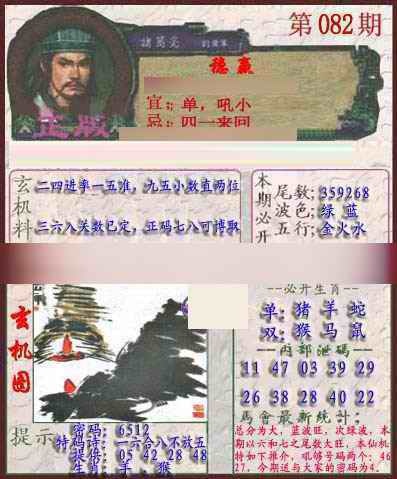 第082期
諸葛亮
稳赢
正版
宜:单,吼小
忌:四一来回
玄机料
二四进季一五准,九五小数直两位
三六八关数已定,正码七八可博取
本期必开
尾数:359268
波色:绿 蓝
五行:金火水
玄机图
必开生肖
单:猪 羊 蛇
双:猴 马 鼠
内部泄码
11 47 03 39 29
26 38 28 40 22
马會最新统计:
总分为大,蓝波旺,次绿波,本
期以六和七之尾数大旺,本仙机
特如下推介,吼够号码两个:46
27,今期送与大家的密码为4.
提示
密码:6512
特码诗:一六合八不放五
提供:05 42 28 48
生肖:羊、猴